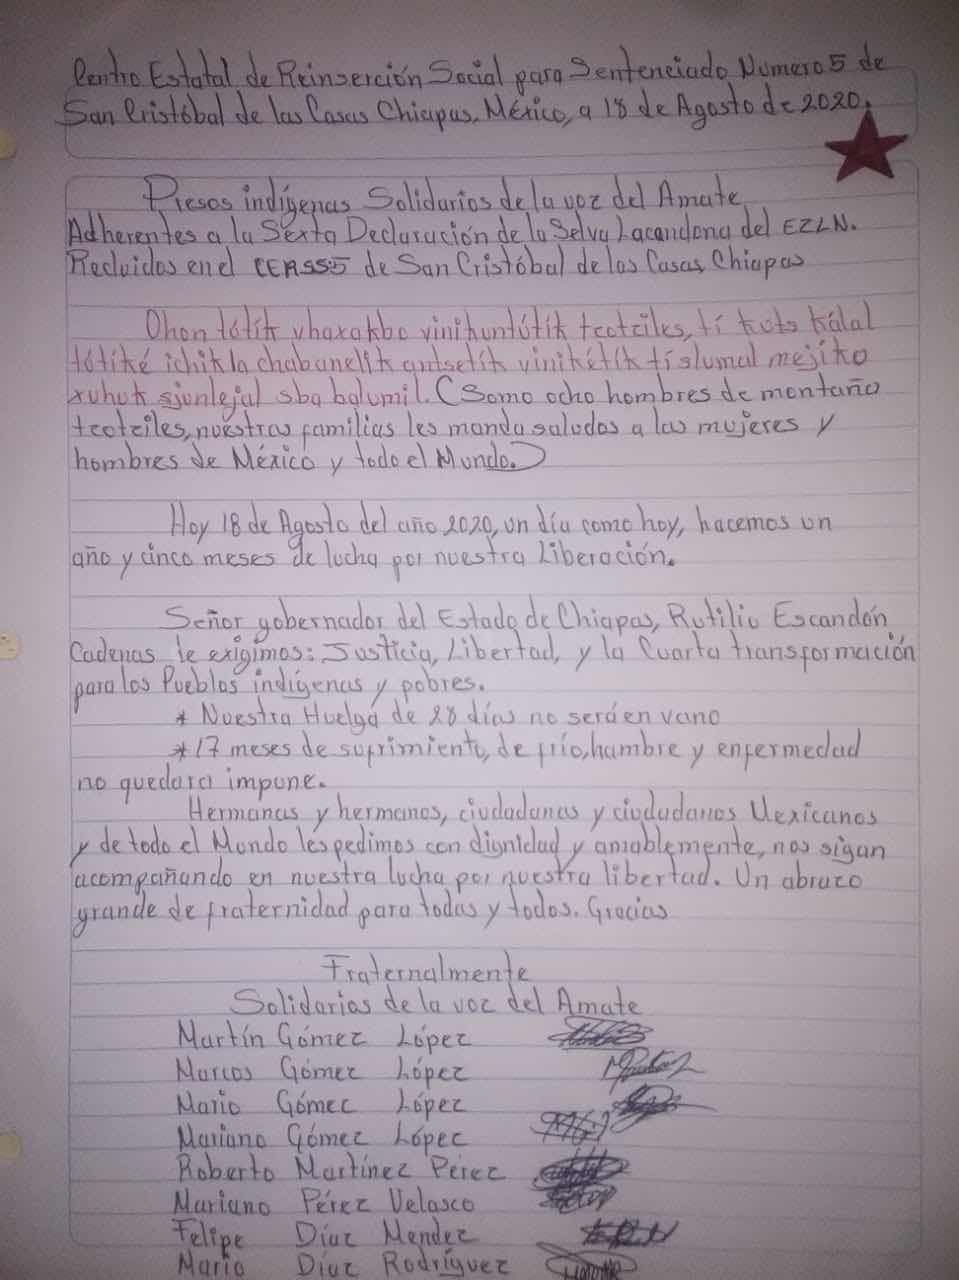 Centro Estatal de Reinserción Social para Sentenciado Numero 5 de
San Cristóbal de las Casas Chiapas, México, a 18 de Agosto de 2020.
Presos indígenas Solidarios de la voz del Amate
Adherentes a la Sexta Declaración de la Selva Lacandona del EZLN.
Recluidos en el CERSS5 de San Cristóbal de las Casas Chiapas
Ohon tótik vhaxakbo vinikuntútik tcotziles, tí kuts kálal
tótiké ichikla chabanelik antsetik vinikétik tíslumal mejiko
xuhuk sjunlejal sba balumil. (Somo ocho hombres de montaña
tcotziles, nuestras familias les manda saludos a las mujeres y
hombres de México y todo el Mundo.)
Hoy 18 de Agosto del año 2020, un día como hoy, hacemos un
año y cinco meses de lucha por nuestra Liberación.
Señor gobernador del Estado de Chiapas, Rutilio Escandón
Cadenas le exigimos: Justicia, Libertad, y la Cuarta transformación
para los Pueblos indígenas y pobres.
* Nuestra Huelga de 28 días no será en vano
* 17 meses de suprimiento, de frío, hambre y enfermedad
no quedará impune.
Hermanas y hermanos, ciudadanas y ciudadanos Mexicanos
y de todo el Mundo les pedimos con dignidad y amablemente, nos sigan
acompañando en nuestra lucha por nuestra libertad. Un abrazo
grande de fraternidad para todas y todos. Gracias
Fraternalmente
Solidarios de la voz del Amate
Martín Gómez López
Marcos Gómez López
Mario Gómez López
Mariano Gómez López
Roberto Martínez Pérez
Mariano Pérez Velasco
Felipe Díaz Mendez
Mario Díaz Rodríguez